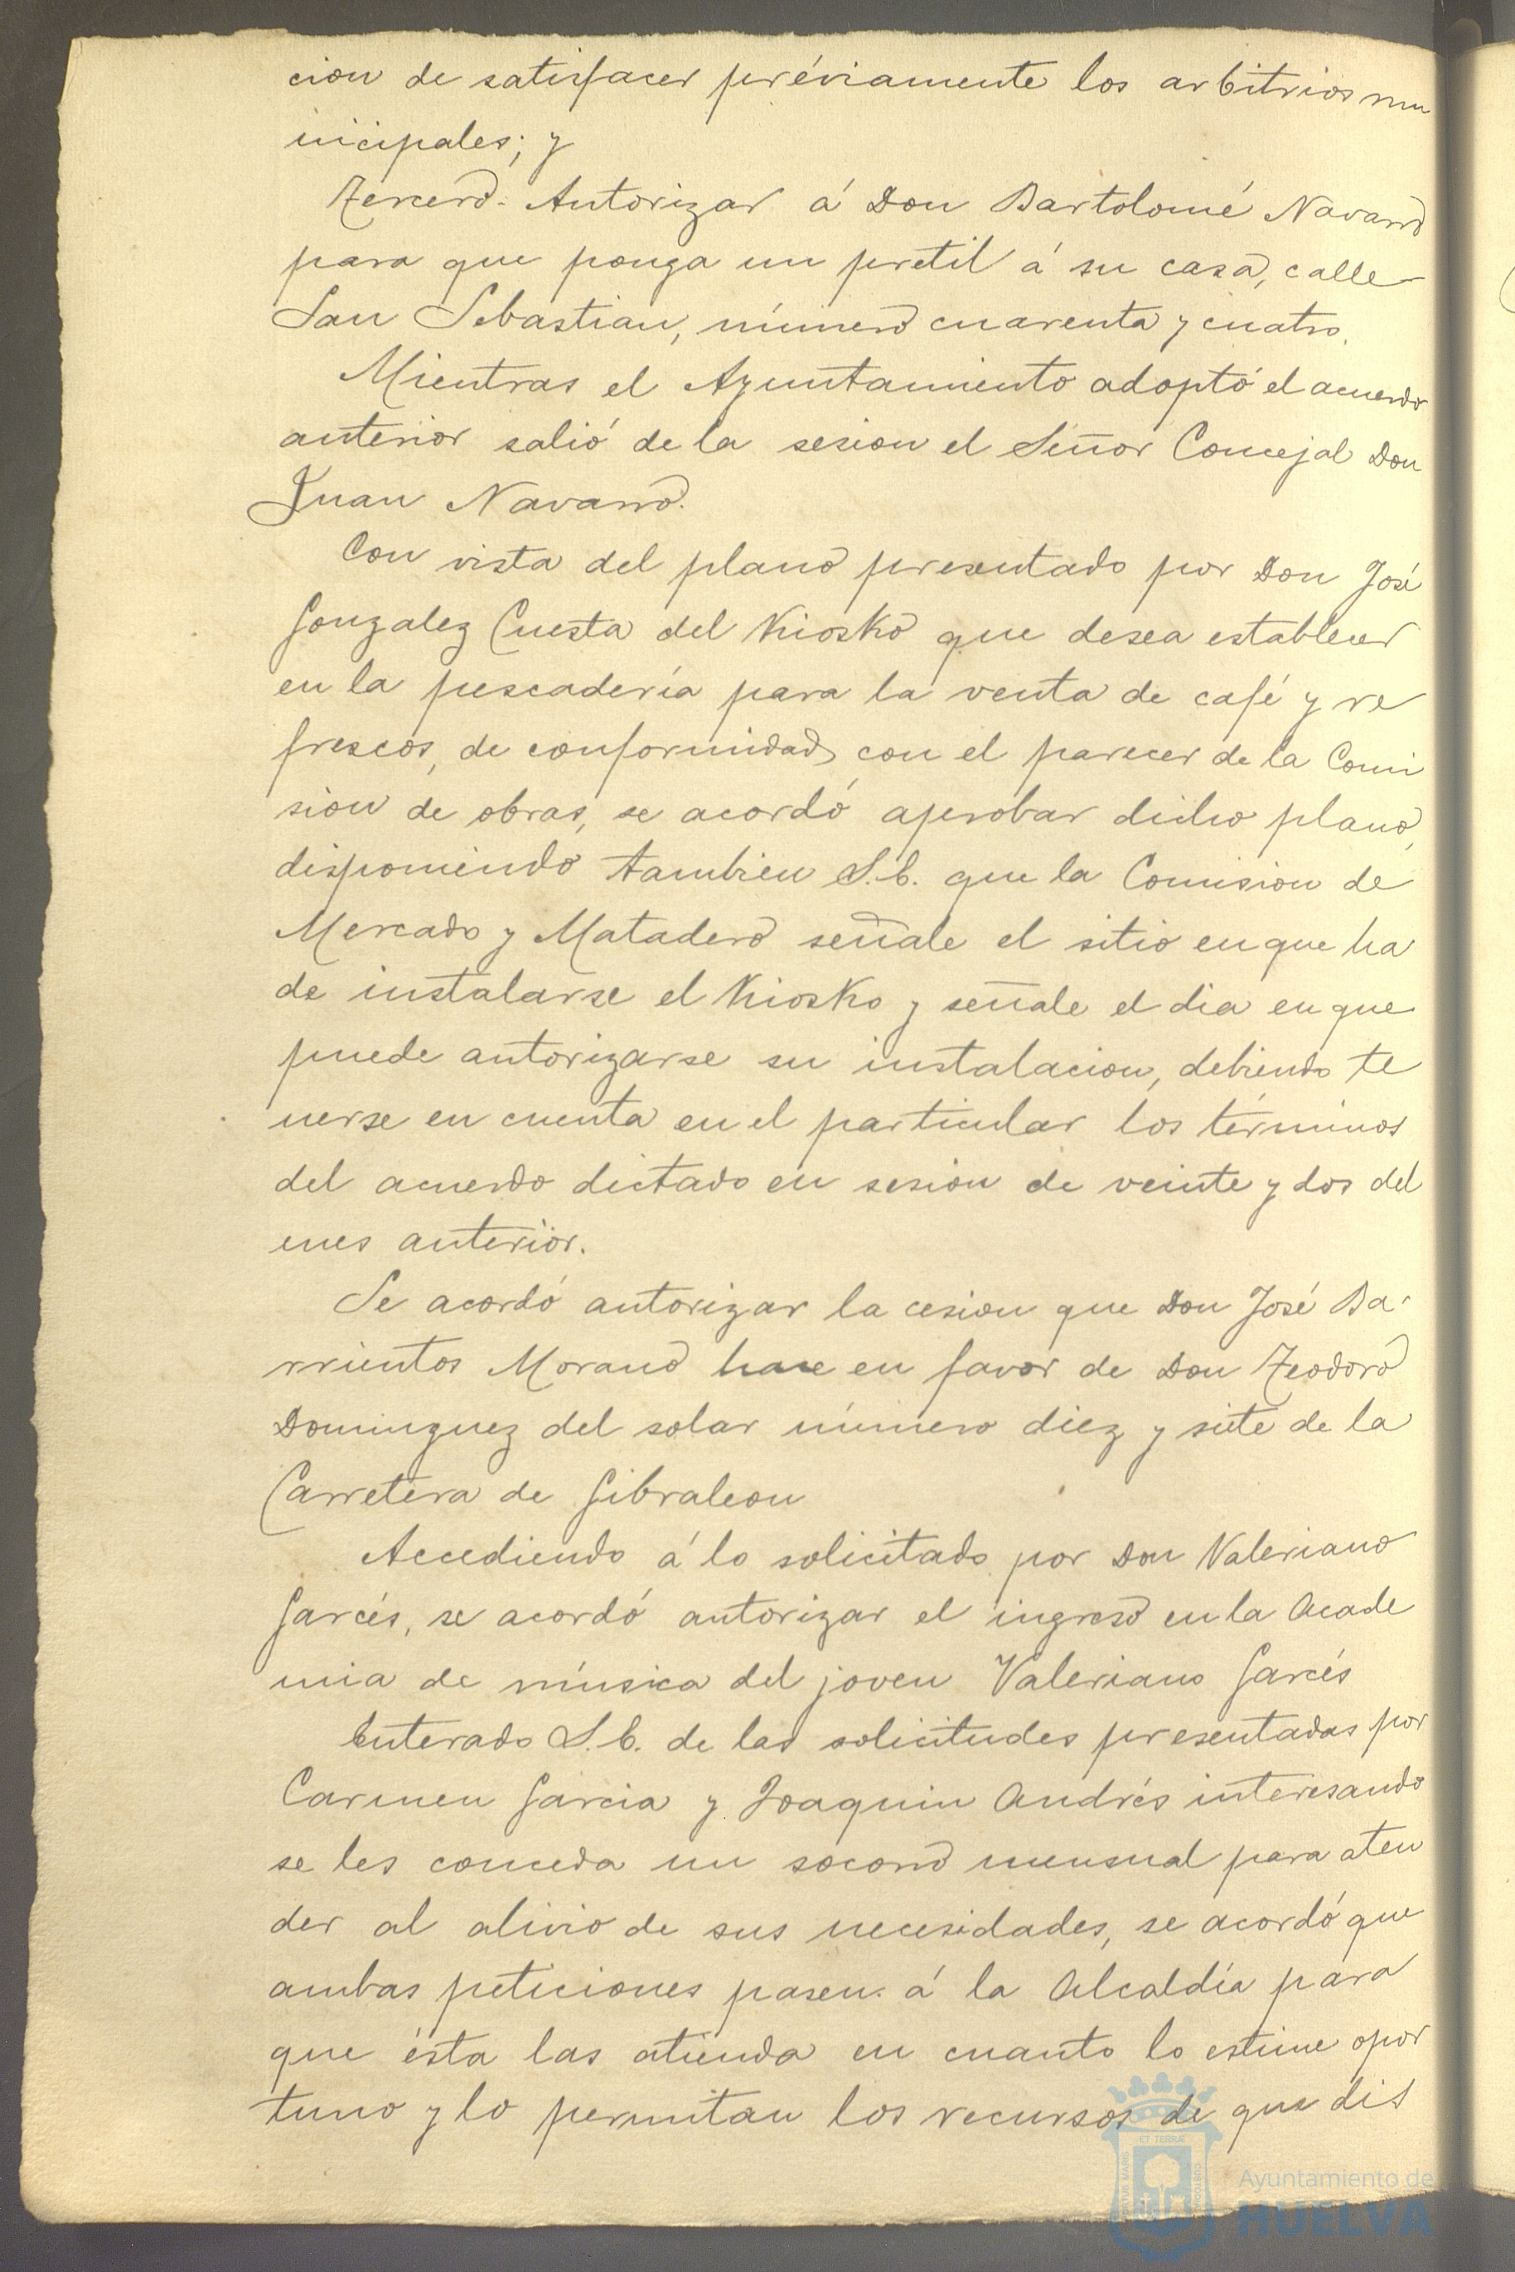 cion de satisfacer préviamente los arbitrios mu
nicipales; y
Tercero. Autorizar á Don Bartolomé Navarro
para que ponga un pretil á su casa, calle
San Sebastian, número cuarenta y cuatro.
Mientras el Ayuntamiento adoptó el acuerdo
anterior salió de la sesion el Señor Concejal Don
Juan Navarro.
Con vista del plano presentado por Don José
Gonzalez Cuesta del Kiosko que desea establecer
en la pescadería para la venta de café y re
frescos, de conformidad con el parecer de la Comi
sion de obras, se acordó aprobar dicho plano,
disponiendo tambien S.E. que la Comision de
Mercado y Matadero señale el sitio en que ha
de instalarse el Kiosko y señale el dia en que
puede autorizarse su instalacion, debiendo te
nerse en cuenta en el particular los términos
del acuerdo dictado en sesion de veinte y dos del
mes anterior.
Se acordó autorizar la cesion que Don José Ba-
rrientos Morano hace en favor de Don Teodoro
Dominguez del solar número diez y siete de la
Carretera de Gibraleon
Accediendo á lo solicitado por Don Valeriano
Garcés, se acordó autorizar el ingreso en la Acade
mia de música del joven Valeriano Garcés
Enterado S.E. de las solicitudes presentadas por
Carmen Garcia y Joaquin Andrés interesando
se les conceda un socorro mensual para aten
der al alivio de sus necesidades, se acordó que
ambas peticiones pasen á la Alcaldía para
que ésta las atienda en cuanto lo estime opor
tuno y lo permitan los recursos de que dis
Ayuntamiento de
HUELVA